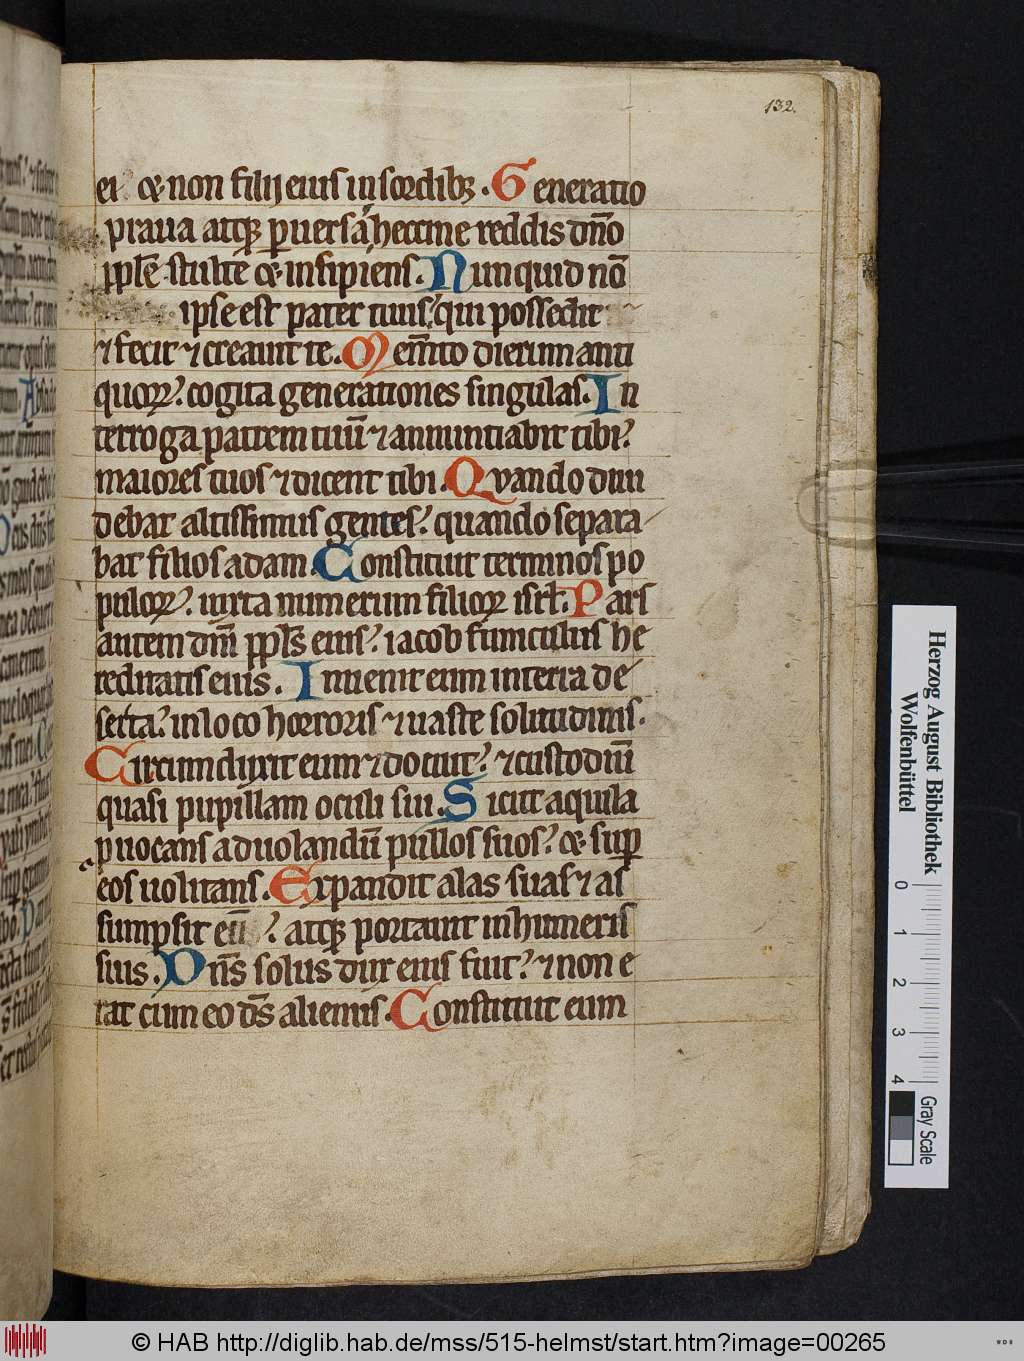 132.
ei ⁊ non filij eius in sordibꝫ. Generatio
praua atqꝫ ꝑuersa heccine reddis dn̄o
pple stulte ⁊ insipiens. Nunquid nō
ipse est pater tuus? qui possedit
⁊ fecit ⁊ creauit te. Mem̄to dierum anti
quoꝝ? cogita generationes singulas. In
terroga patrem tuū ⁊ annuntiabit tibi?
maiores tuos ⁊ dicent tibi. Quando diui
debat altissimus gentes? quando separa
bat filios adam. Constituit terminos po
puloꝝ? iuxta numerum filioꝝ isrł. Pars
autem dn̄i ppłs eius? iacob funiculus he
reditatis eius. Inuenit eum in terra de
serta? in loco horroris ⁊ uaste solitudinis.
Circumduxit eum ⁊ docuit? ⁊ custodiuī
quasi pupillam oculi sui. Sicut aquila
ꝓuocans ad uolandū pullos suos? ⁊ suꝑ
eos uolitans. Expandit alas suas ⁊ as
sumpsit eū? atqꝫ portauit in humeris
suis. Dn̄s solus dux eius fuit? ⁊ non e
rat cum eo ds̄ alienus. Constituit eum
Herzog August Bibliothek
Wolfenbüttel
0 1 2 3 4
Gray Scale
© HAB http://diglib.hab.de/mss/515-helmst/start.htm?image=00265